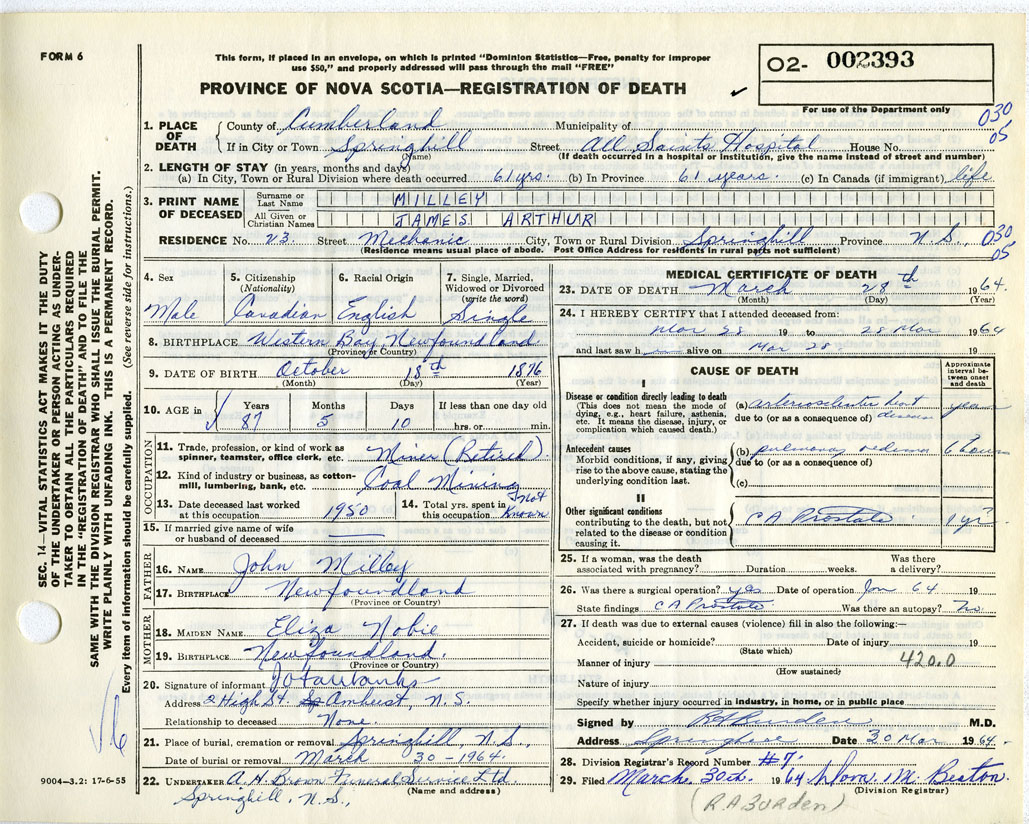 FORM 6
This form, if placed in an envelope, on which is printed "Dominion Statistics—Free, penalty for improper
use $50," and properly addressed will pass through the mail "FREE"
O2- 002393
PROVINCE OF NOVA SCOTIA—REGISTRATION OF DEATH
For use of the Department only
030
05
1. PLACE OF DEATH { County of Cumberland Municipality of
If in City or Town Springhill Street All Saints Hospital House No.
(Name) (If death occurred in a hospital or institution, give the name instead of street and number)
2. LENGTH OF STAY (in years, months and days)
(a) In City, Town or Rural Division where death occurred 61 yrs. (b) In Province 61 years. (c) In Canada (if immigrant) life
3. PRINT NAME OF DECEASED { Surname or Last Name MILLEY
All Given or Christian Names JAMES ARTHUR
RESIDENCE No. 23. Street Mechanic City, Town or Rural Division Springhill Province N.S., 030
05
(Residence means usual place of abode. Post Office Address for residents in rural parts not sufficient)
4. Sex Male
5. Citizenship (Nationality) Canadian
6. Racial Origin English
7. Single, Married, Widowed or Divorced (write the word) Single
8. BIRTHPLACE Western Bay Newfoundland
(Province or Country)
9. DATE OF BIRTH October 18th 1876
(Month) (Day) (Year)
10. AGE in { Years 87 Months 5 Days 10 If less than one day old
hrs. or min.
OCCUPATION
11. Trade, profession, or kind of work as
spinner, teamster, office clerk, etc. Miner (Retired)
12. Kind of industry or business, as cotton-
mill, lumbering, bank, etc. Coal Mining
13. Date deceased last worked
at this occupation 1950
14. Total yrs. spent in
this occupation not Known
15. If married give name of wife
or husband of deceased
FATHER
16. NAME John Milley
17. BIRTHPLACE Newfoundland
(Province or Country)
MOTHER
18. MAIDEN NAME Eliza Nobie
19. BIRTHPLACE Newfoundland.
(Province or Country)
20. Signature of informant Fairbanks
Address 2 High St. Amherst, N.S.
Relationship to deceased None.
21. Place of burial, cremation or removal Springhill, N.S.,
Date of burial or removal March 30-1964.
22. UNDERTAKER A. H. Brown Funeral Service Ltd.
(Name and address)
Springhill, N.S.,
MEDICAL CERTIFICATE OF DEATH
23. DATE OF DEATH March 28th 1964.
(Month) (Day) (Year)
24. I HEREBY CERTIFY that I attended deceased from:
Mar 28 19 to 28 Mar 1964
and last saw h alive on Mar 28 19
CAUSE OF DEATH
Approximate interval be-tween onset and death
I
Disease or condition directly leading to death
(This does not mean the mode of
dying, e.g., heart failure, asthenia,
etc. It means the disease, injury, or
complication which caused death.)
(a) arteriosclerotic heart disease years
due to (or as a consequence of)
Antecedent causes
Morbid conditions, if any, giving
rise to the above cause, stating the
underlying condition last.
(b) pulmonary oedema 6 hours
due to (or as a consequence of)
(c)
II
Other significant conditions
contributing to the death, but not
related to the disease or condition
causing it.
CA Prostate 1 yr?
25. If a woman, was the death
associated with pregnancy? Duration weeks. Was there
a delivery?
26. Was there a surgical operation? yes Date of operation Jan 64 19
State findings CA Prostate Was there an autopsy? No
27. If death was due to external causes (violence) fill in also the following:—
Accident, suicide or homicide? Date of injury 19
(State which)
Manner of injury 420.0
(How sustained)
Nature of injury
Specify whether injury occurred in industry, in home, or in public place
Signed by R A Burden M.D.
Address Springhill Date 30 Mar 1964.
28. Division Registrar's Record Number #7.
29. Filed March 30th. 1964 M. Beaton.
(Division Registrar)
(R.A BURDEN)
SEC. 14—VITAL STATISTICS ACT MAKES IT THE DUTY
OF THE UNDERTAKER OR PERSON ACTING AS UNDER-
TAKER TO OBTAIN ALL THE PARTICULARS REQUIRED
IN THE "REGISTRATION OF DEATH" AND TO FILE THE
SAME WITH THE DIVISION REGISTRAR WHO SHALL ISSUE THE BURIAL PERMIT.
WRITE PLAINLY WITH UNFADING INK. THIS IS A PERMANENT RECORD.
Every item of information should be carefully supplied. (See reverse side for instructions.)
9004—3.2: 17-6-55